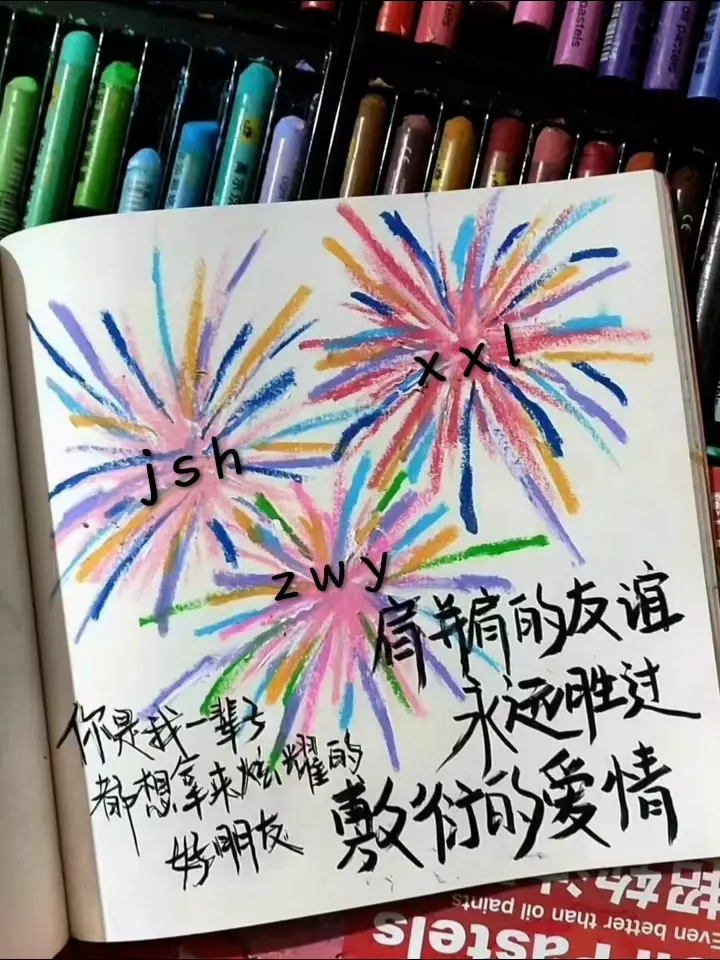 xxl
jsh
zwy
肩并肩的友谊
永远胜过
敷衍的爱情
你是我一辈子
都想拿来炫耀的
好朋友
Even better than oil paints
Pastels